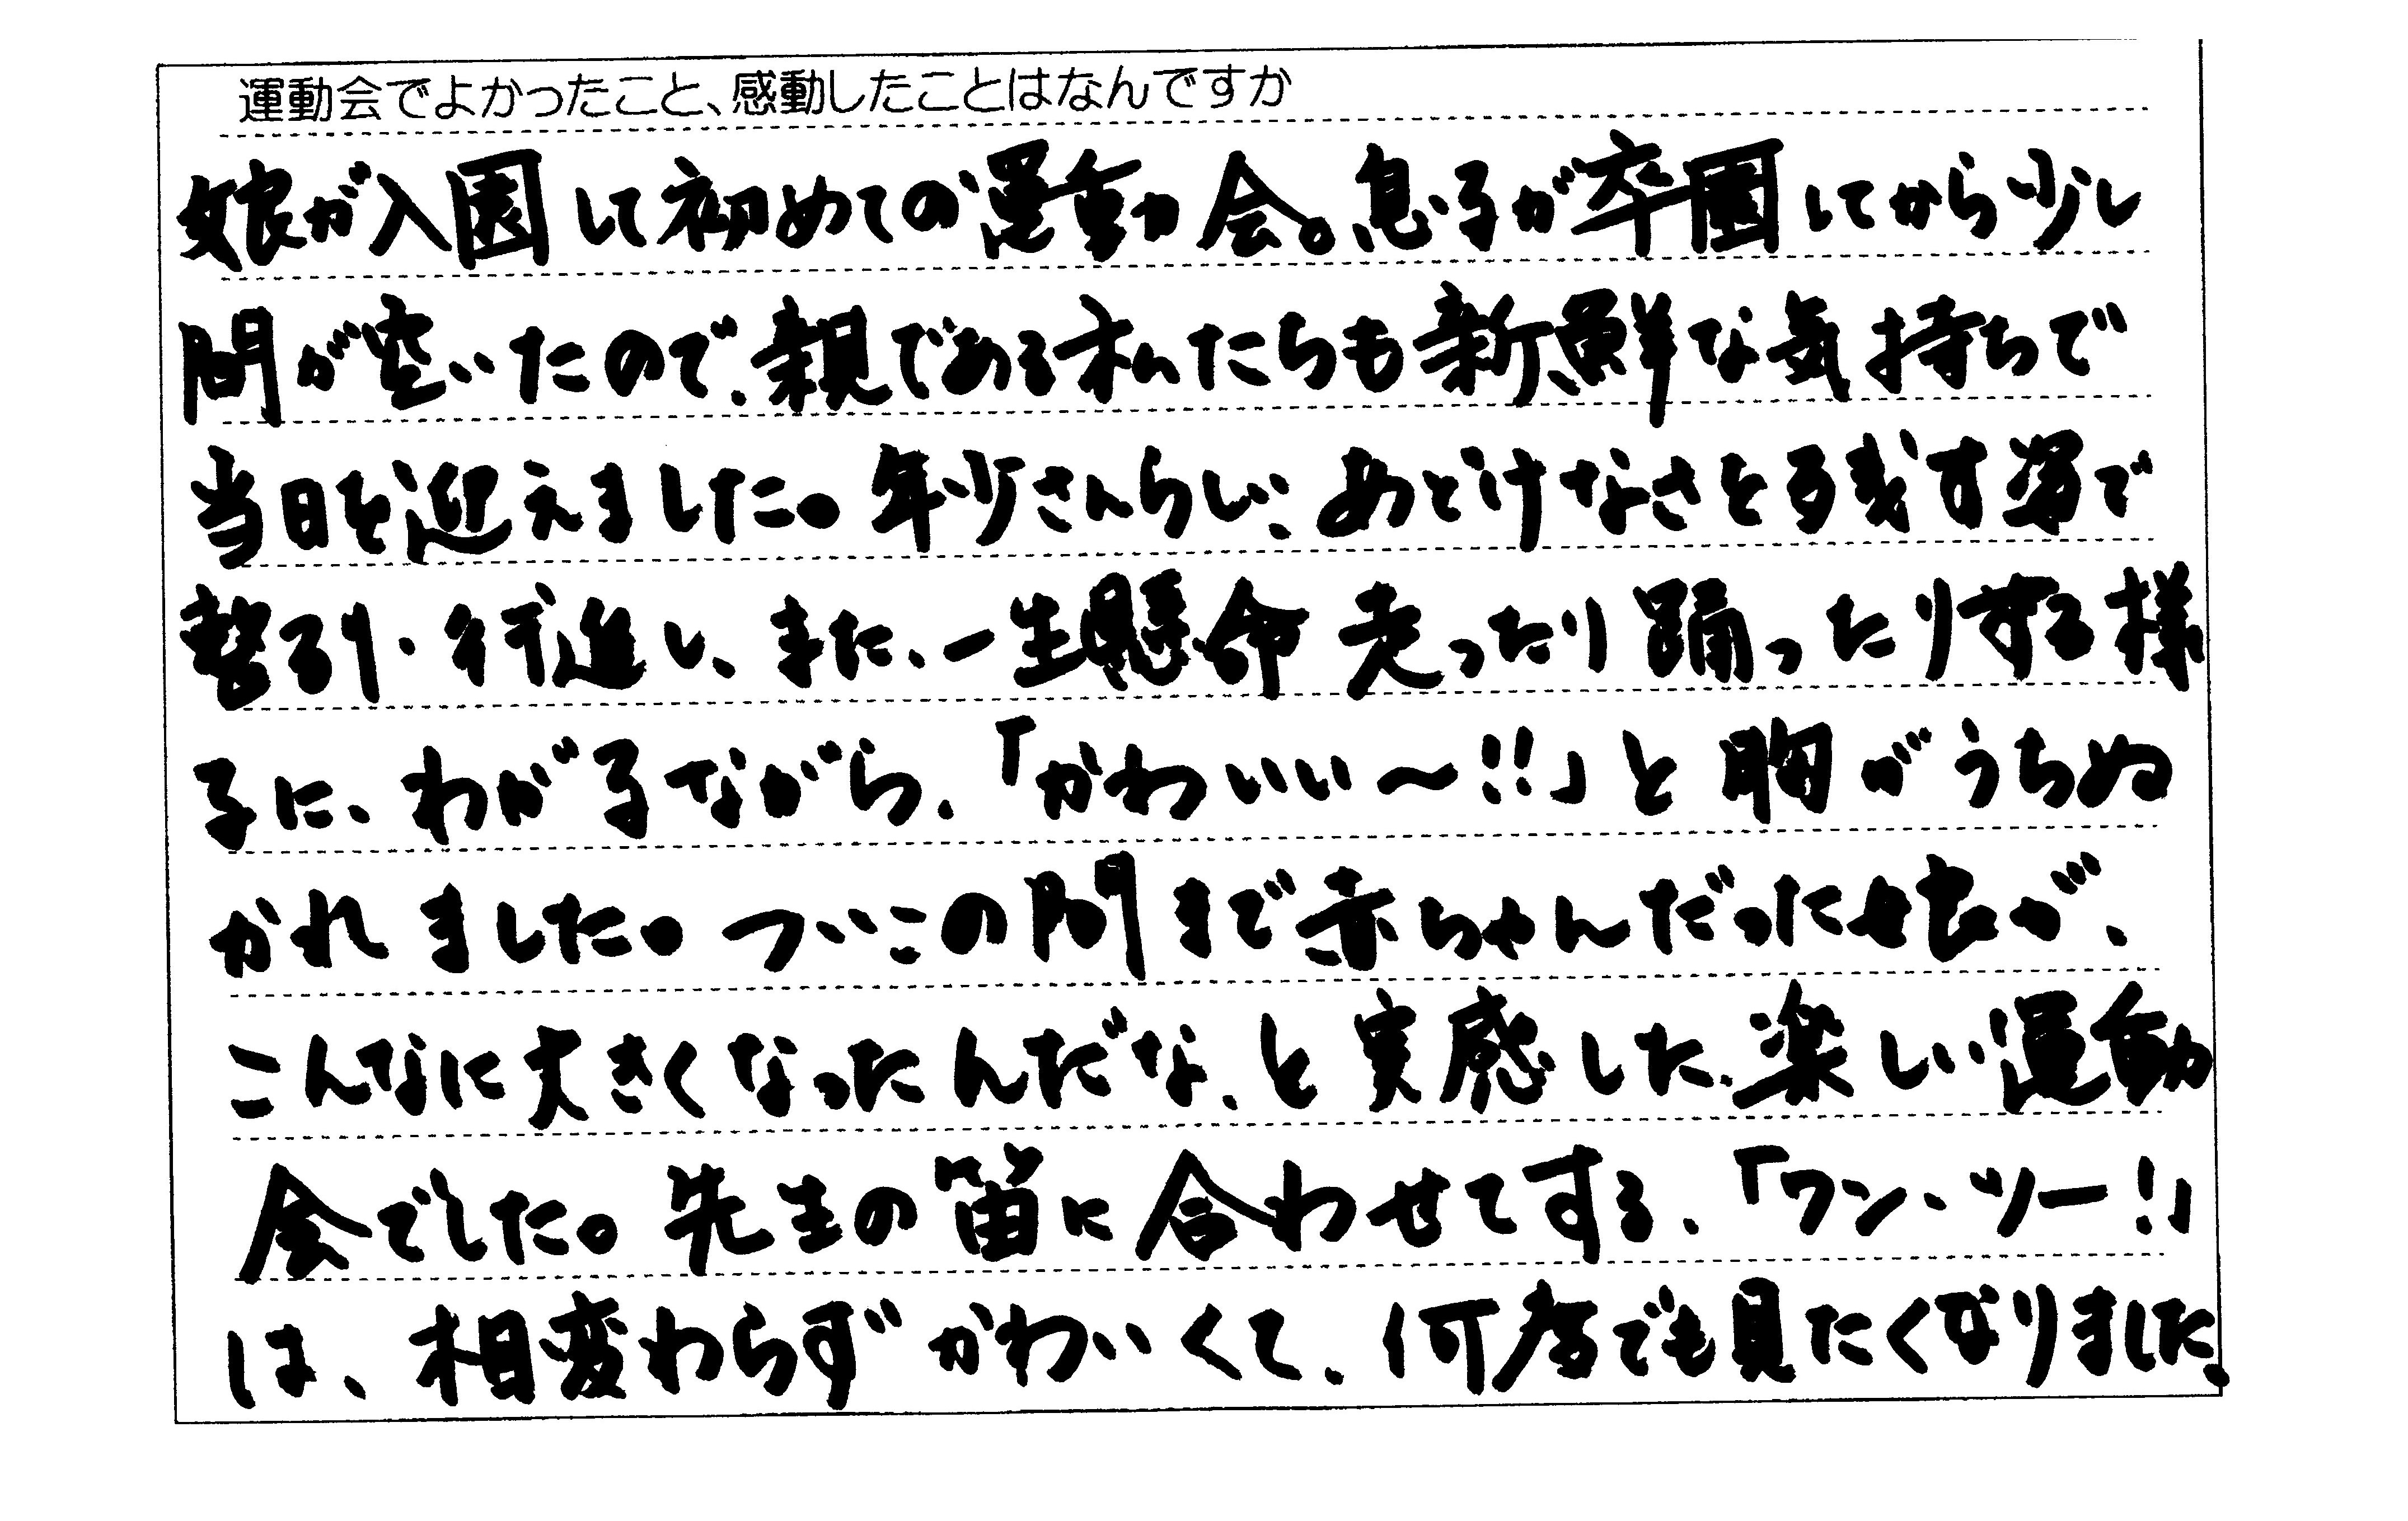 運動会でよかったこと、感動したことはなんですか
娘が入園して初めての運動会。息子が卒園してから少し
間が空いたので、親である私たちも新鮮な気持ちで
当日を迎えました。年少さんらしい、あどけなさを残す姿で
整列・行進し、また、一生懸命走ったり踊ったりする様
子に、わが子ながら、「かわいい〜!!」と胸がうちぬ
かれました。ついこの間まで赤ちゃんだった娘が、
こんなに大きくなったんだな、と実感した、楽しい運動
会でした。先生の笛に合わせてする、「ワン、ツー!」
は、相変わらずかわいくて、何度でも見たくなりました。